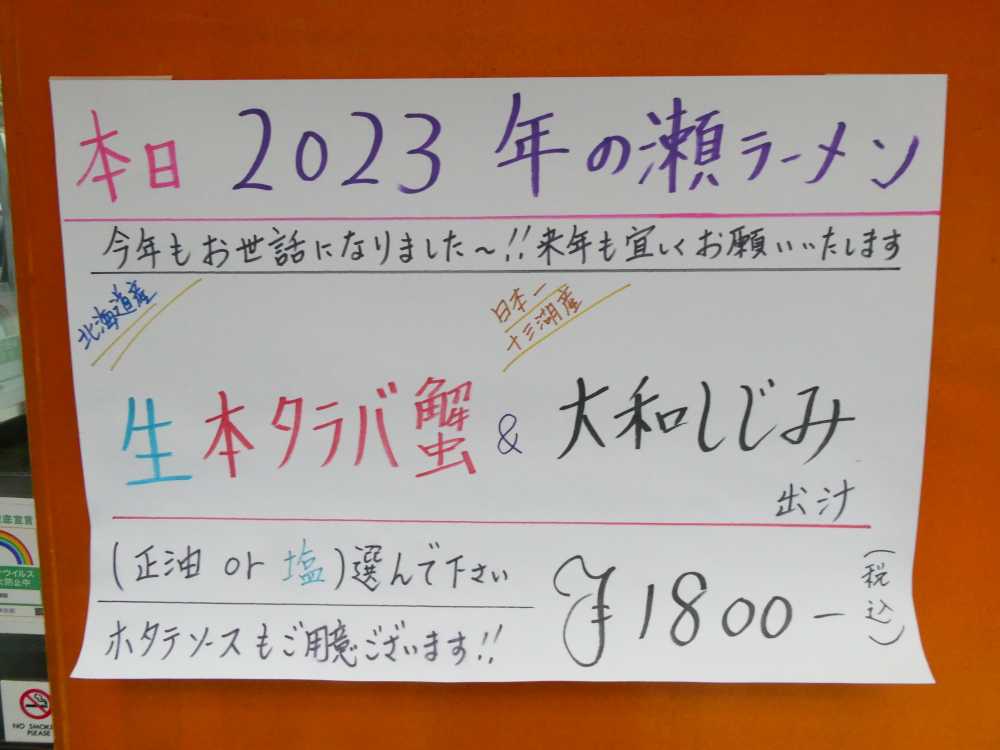 本日 2023 年の瀬ラーメン
今年もお世話になりました～!! 来年も宜しくお願いいたします
北海道産
日本一
十三湖産
生本タラバ蟹 & 大和しじみ
出汁
(正油 or 塩)選んで下さい
ホタテソースもご用意ございます!!
¥1800-
(税込)
底宣言
ウイルス
防止中
NO SMOKE
PLEASE